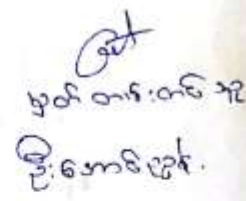 မှတ်တမ်းတင်သူ
ဦးအောင်ညွန့်.